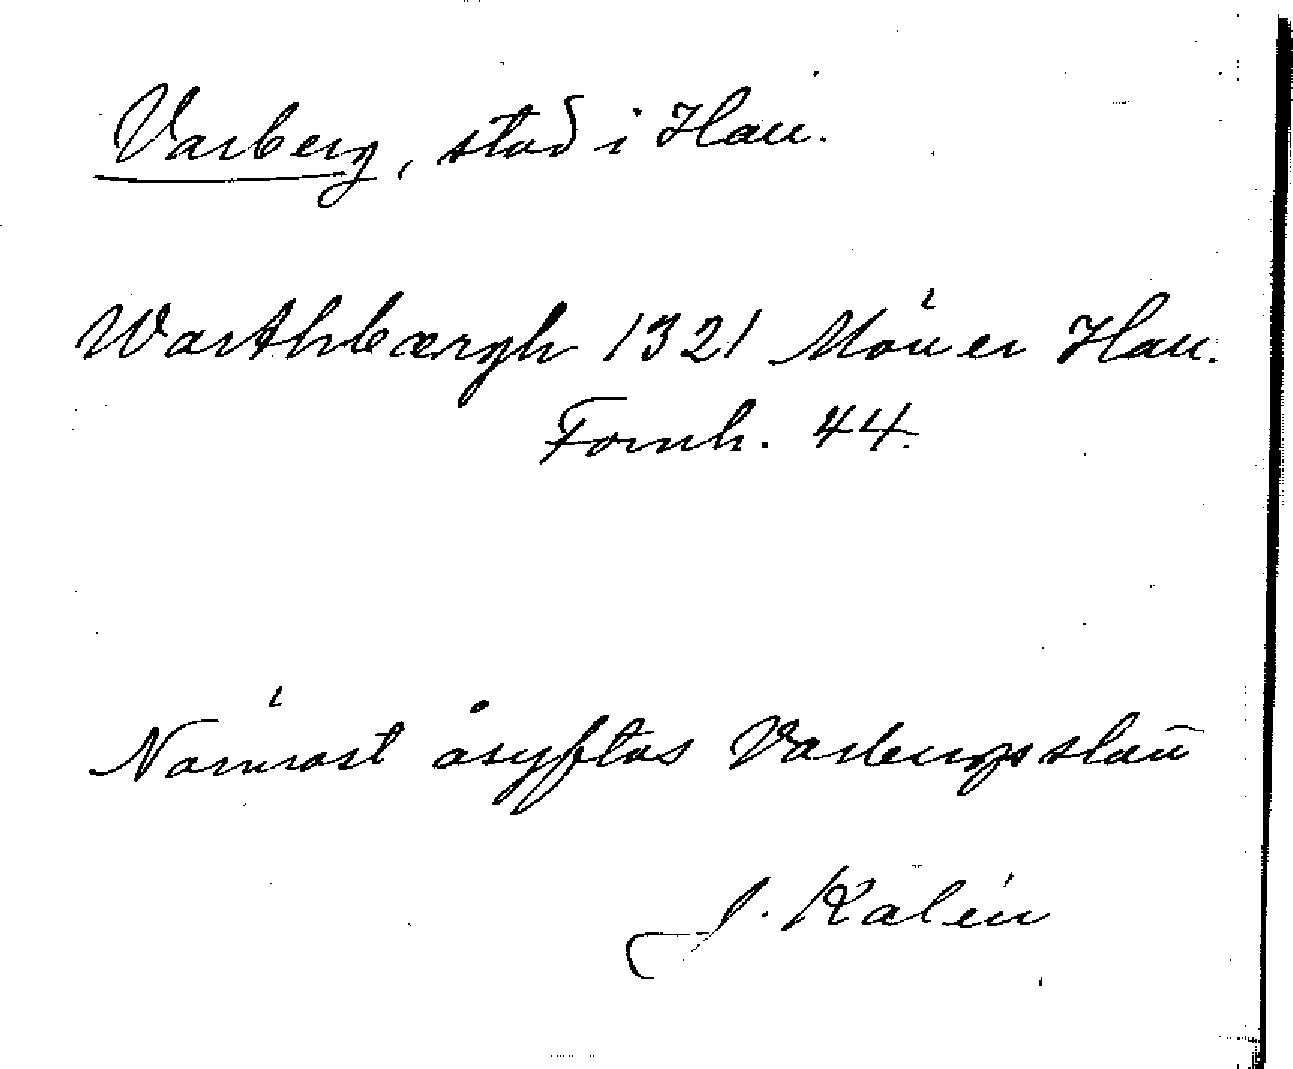 Varberg, stad i Hall.
Warthbærgh 1321 Möller Hall.
Fornh. 44.
Närmast åsyftas Varbergs slått
J. Kalén